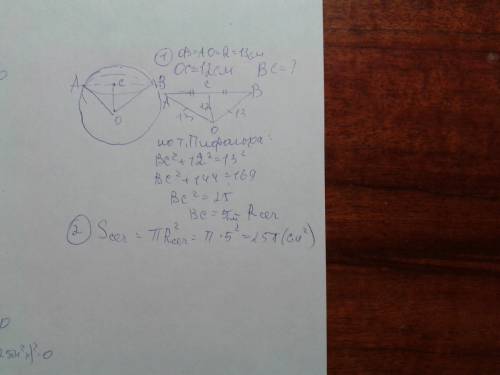 ① OB=AO=R=13см
OC=12см BC=?
A C B
O
A C B
13 12 13
O
по т. Пифагора:
BC²+12²=13²
BC²+144=169
BC²=25
BC=5см Rсеч
② Sсеч = πR²сеч = π·5² = 25π(см²)